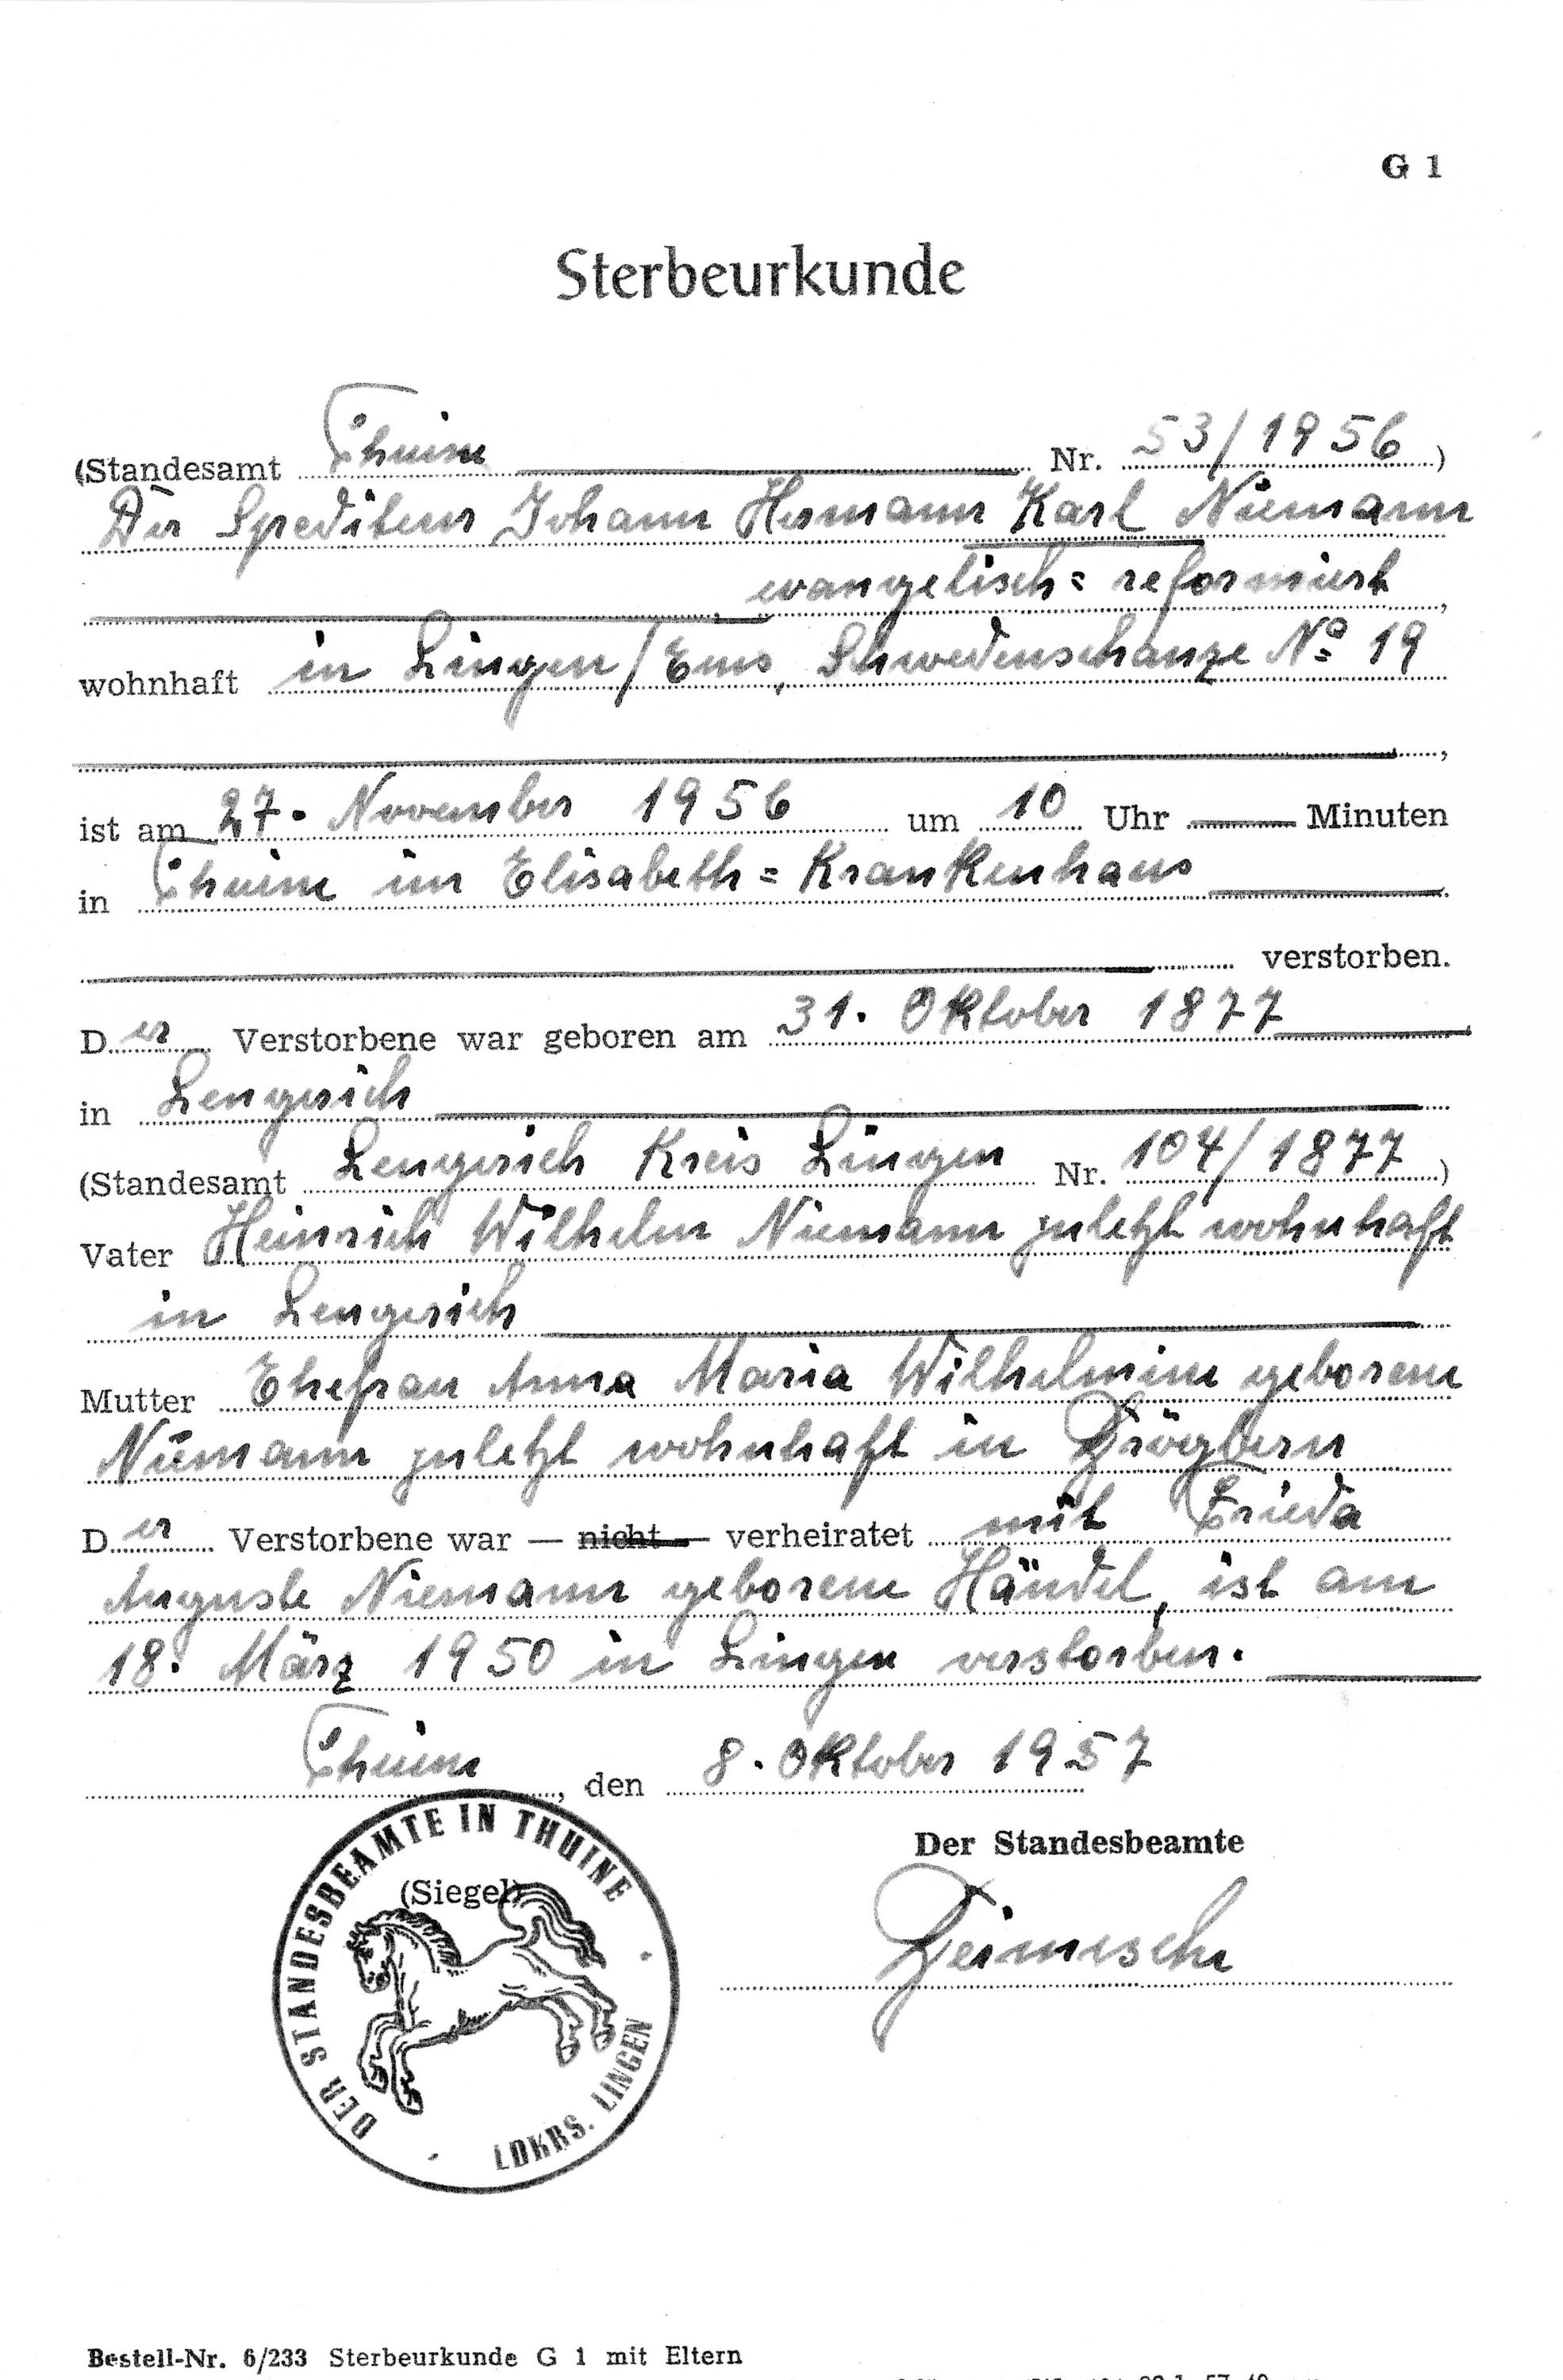 G 1
Sterbeurkunde
(Standesamt Thuine Nr. 53/1956)
Der Spediteur Johann Hermann Karl Niemann
, evangelisch=reformiert,
wohnhaft in Lingen/Ems, Schwedenschanze No 19
,
ist am 27. November 1956 um 10 Uhr — Minuten
in Thuine im Elisabeth=Krankenhaus
verstorben.
Der Verstorbene war geboren am 31. Oktober 1877
in Lengerich
(Standesamt Lengerich Kreis Lingen Nr. 104/1877)
Vater Heinrich Wilhelm Niemann zuletzt wohnhaft
in Lengerich
Mutter Ehefrau Anna Maria Wilhelmine geborene
Niemann zuletzt wohnhaft in Brögbern
Der Verstorbene war — nicht — verheiratet mit Frieda
Auguste Niemann geborene Händel, ist am
18. März 1950 in Lingen verstorben.
Thuine, den 8. Oktober 1957
Der Standesbeamte
(Siegel)
DER STANDESBEAMTE IN THUINE
LDKRS. LINGEN
Bestell-Nr. 6/233 Sterbeurkunde G 1 mit Eltern